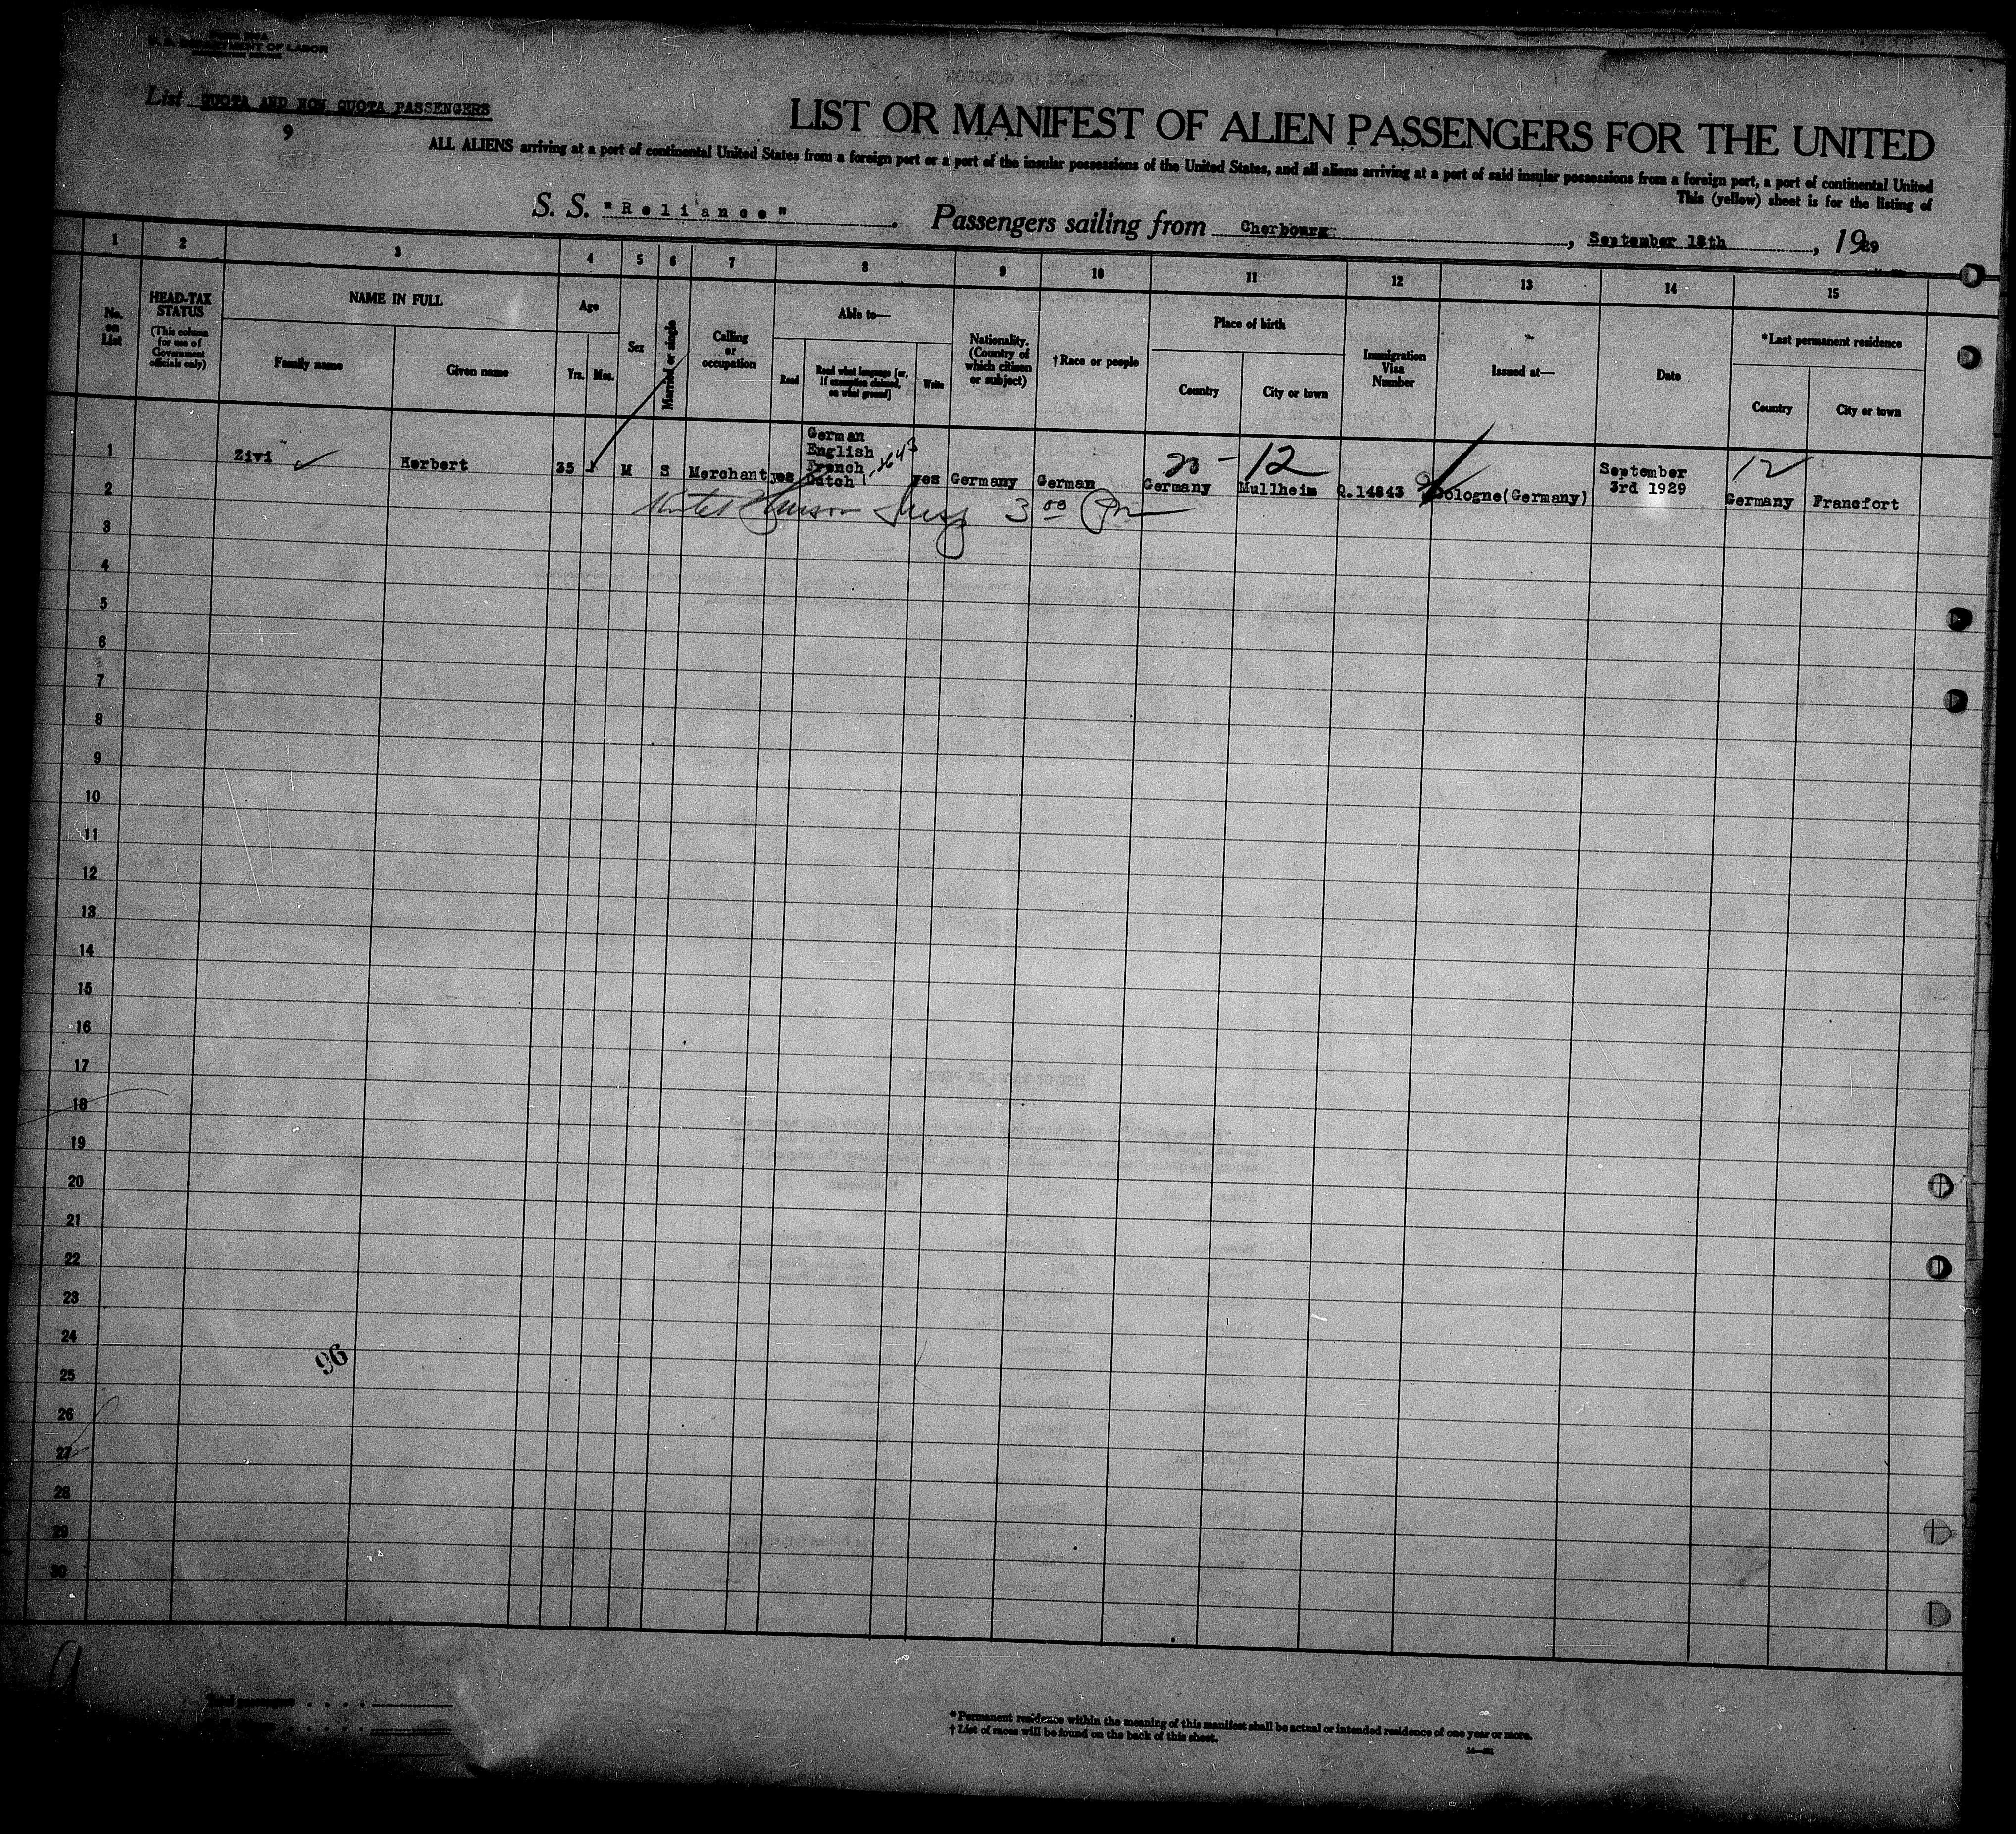 DEPARTMENT OF LABOR
List QUOTA AND NON QUOTA PASSENGERS
9
LIST OR MANIFEST OF ALIEN PASSENGERS FOR THE UNITED
ALL ALIENS arriving at a port of continental United States from a foreign port or a port of the insular possessions of the United States, and all aliens arriving at a port of said insular possessions from a foreign port, a port of continental United
This (yellow) sheet is for the listing of
S. S. "Reliance". Passengers sailing from Cherbourg, September 18th, 1929
1 2 3 4 5 6 7 8 9 10 11 12 13 14 15
No. on List
HEAD-TAX STATUS
(This column for use of Government officials only)
NAME IN FULL
Family name
Given name
Age
Yrs. Mos.
Sex
Married or single
Calling or occupation
Able to—
Read
Read what language [or, if exemption claimed, on what ground]
Write
Nationality. (Country of which citizen or subject)
†Race or people
Place of birth
Country
City or town
Immigration Visa Number
Issued at—
Date
*Last permanent residence
Country
City or town
1 Zivi Herbert 35 M S Merchant yes German English French Dutch yes Germany German Germany Mullheim Q.14843 Cologne(Germany) September 3rd 1929 Germany Francfort
12
12
3 00
2
3
4
5
6
7
8
9
10
11
12
13
14
15
16
17
18
19
20
21
22
23
24
25
26
27
28
29
30
96
* Permanent residence within the meaning of this manifest shall be actual or intended residence of one year or more.
† List of races will be found on the back of this sheet.